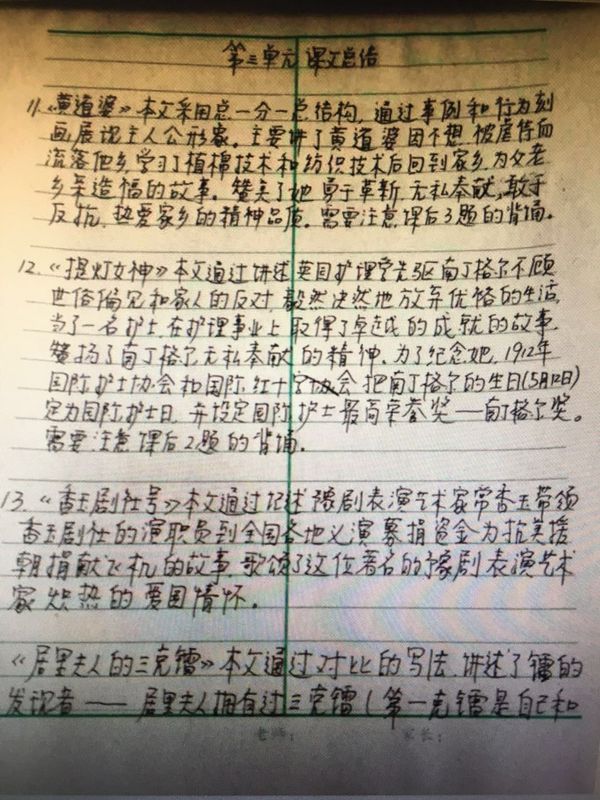 第三单元 课文总结
11.《黄道婆》本文采用总一分一总结构,通过事例和行为刻
画,展现主人公形象。主要讲了黄道婆因不想被虐待而
流落他乡学习了植棉技术和纺织技术后回到家乡,为父老
乡亲造福的故事。赞美了她勇于革新,无私奉献,敢于
反抗,热爱家乡的精神品质。需要注意课后3题的背诵。
12.《提灯女神》本文通过讲述英国护理学先驱南丁格尔不顾
世俗偏见和家人的反对,毅然决然地放弃优裕的生活,
当了一名护士,在护理事业上取得了卓越的成就的故事.
赞扬了南丁格尔无私奉献的精神。为了纪念她,1912年
国际护士协会和国际红十字协会把南丁格尔的生日(5月12日)
定为国际护士日,并设定国际护士最高荣誉奖——南丁格尔奖。
需要注意课后2题的背诵。
13.《香玉剧社号》本文通过记述豫剧表演艺术家常香玉带领
香玉剧社的演职员到全国各地义演募捐资金为抗美援
朝捐献飞机的故事,歌颂了这位著名的豫剧表演艺术
家炽热的爱国情怀。
《居里夫人的三克镭》本文通过对比的写法,讲述了镭的
发现者——居里夫人拥有过三克镭(第一克镭是自己和
老师: 家长: